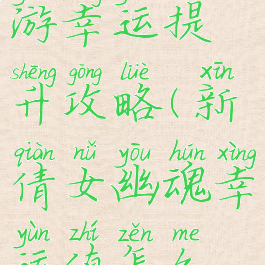 游幸运提
shēng gōng lüè xīn
升攻略(新
qiàn nǚ yōu hún xìng
倩女幽魂幸
yùn zhí zěn me
运值怎么